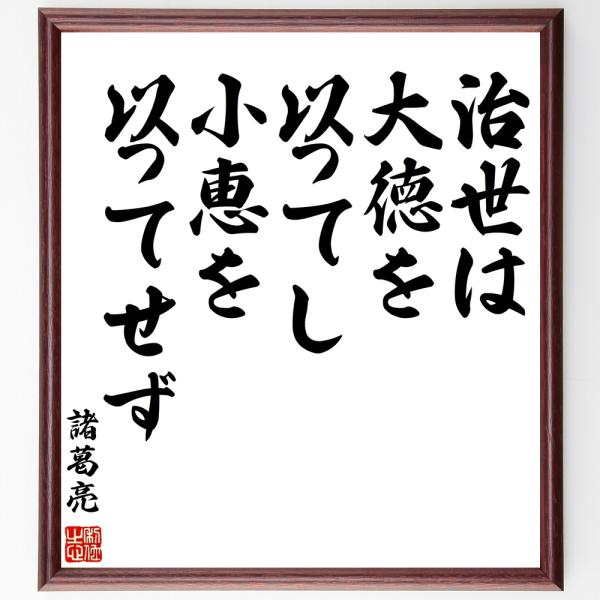 治世は
大徳を
以ってし
小恵を
以ってせず
諸葛亮